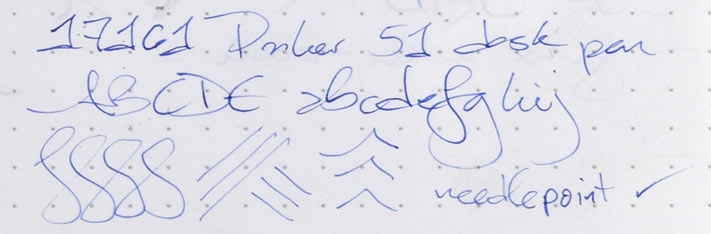 17161 Parker 51 desk pen
ABCDE abcdefghij
needlepoint ✓